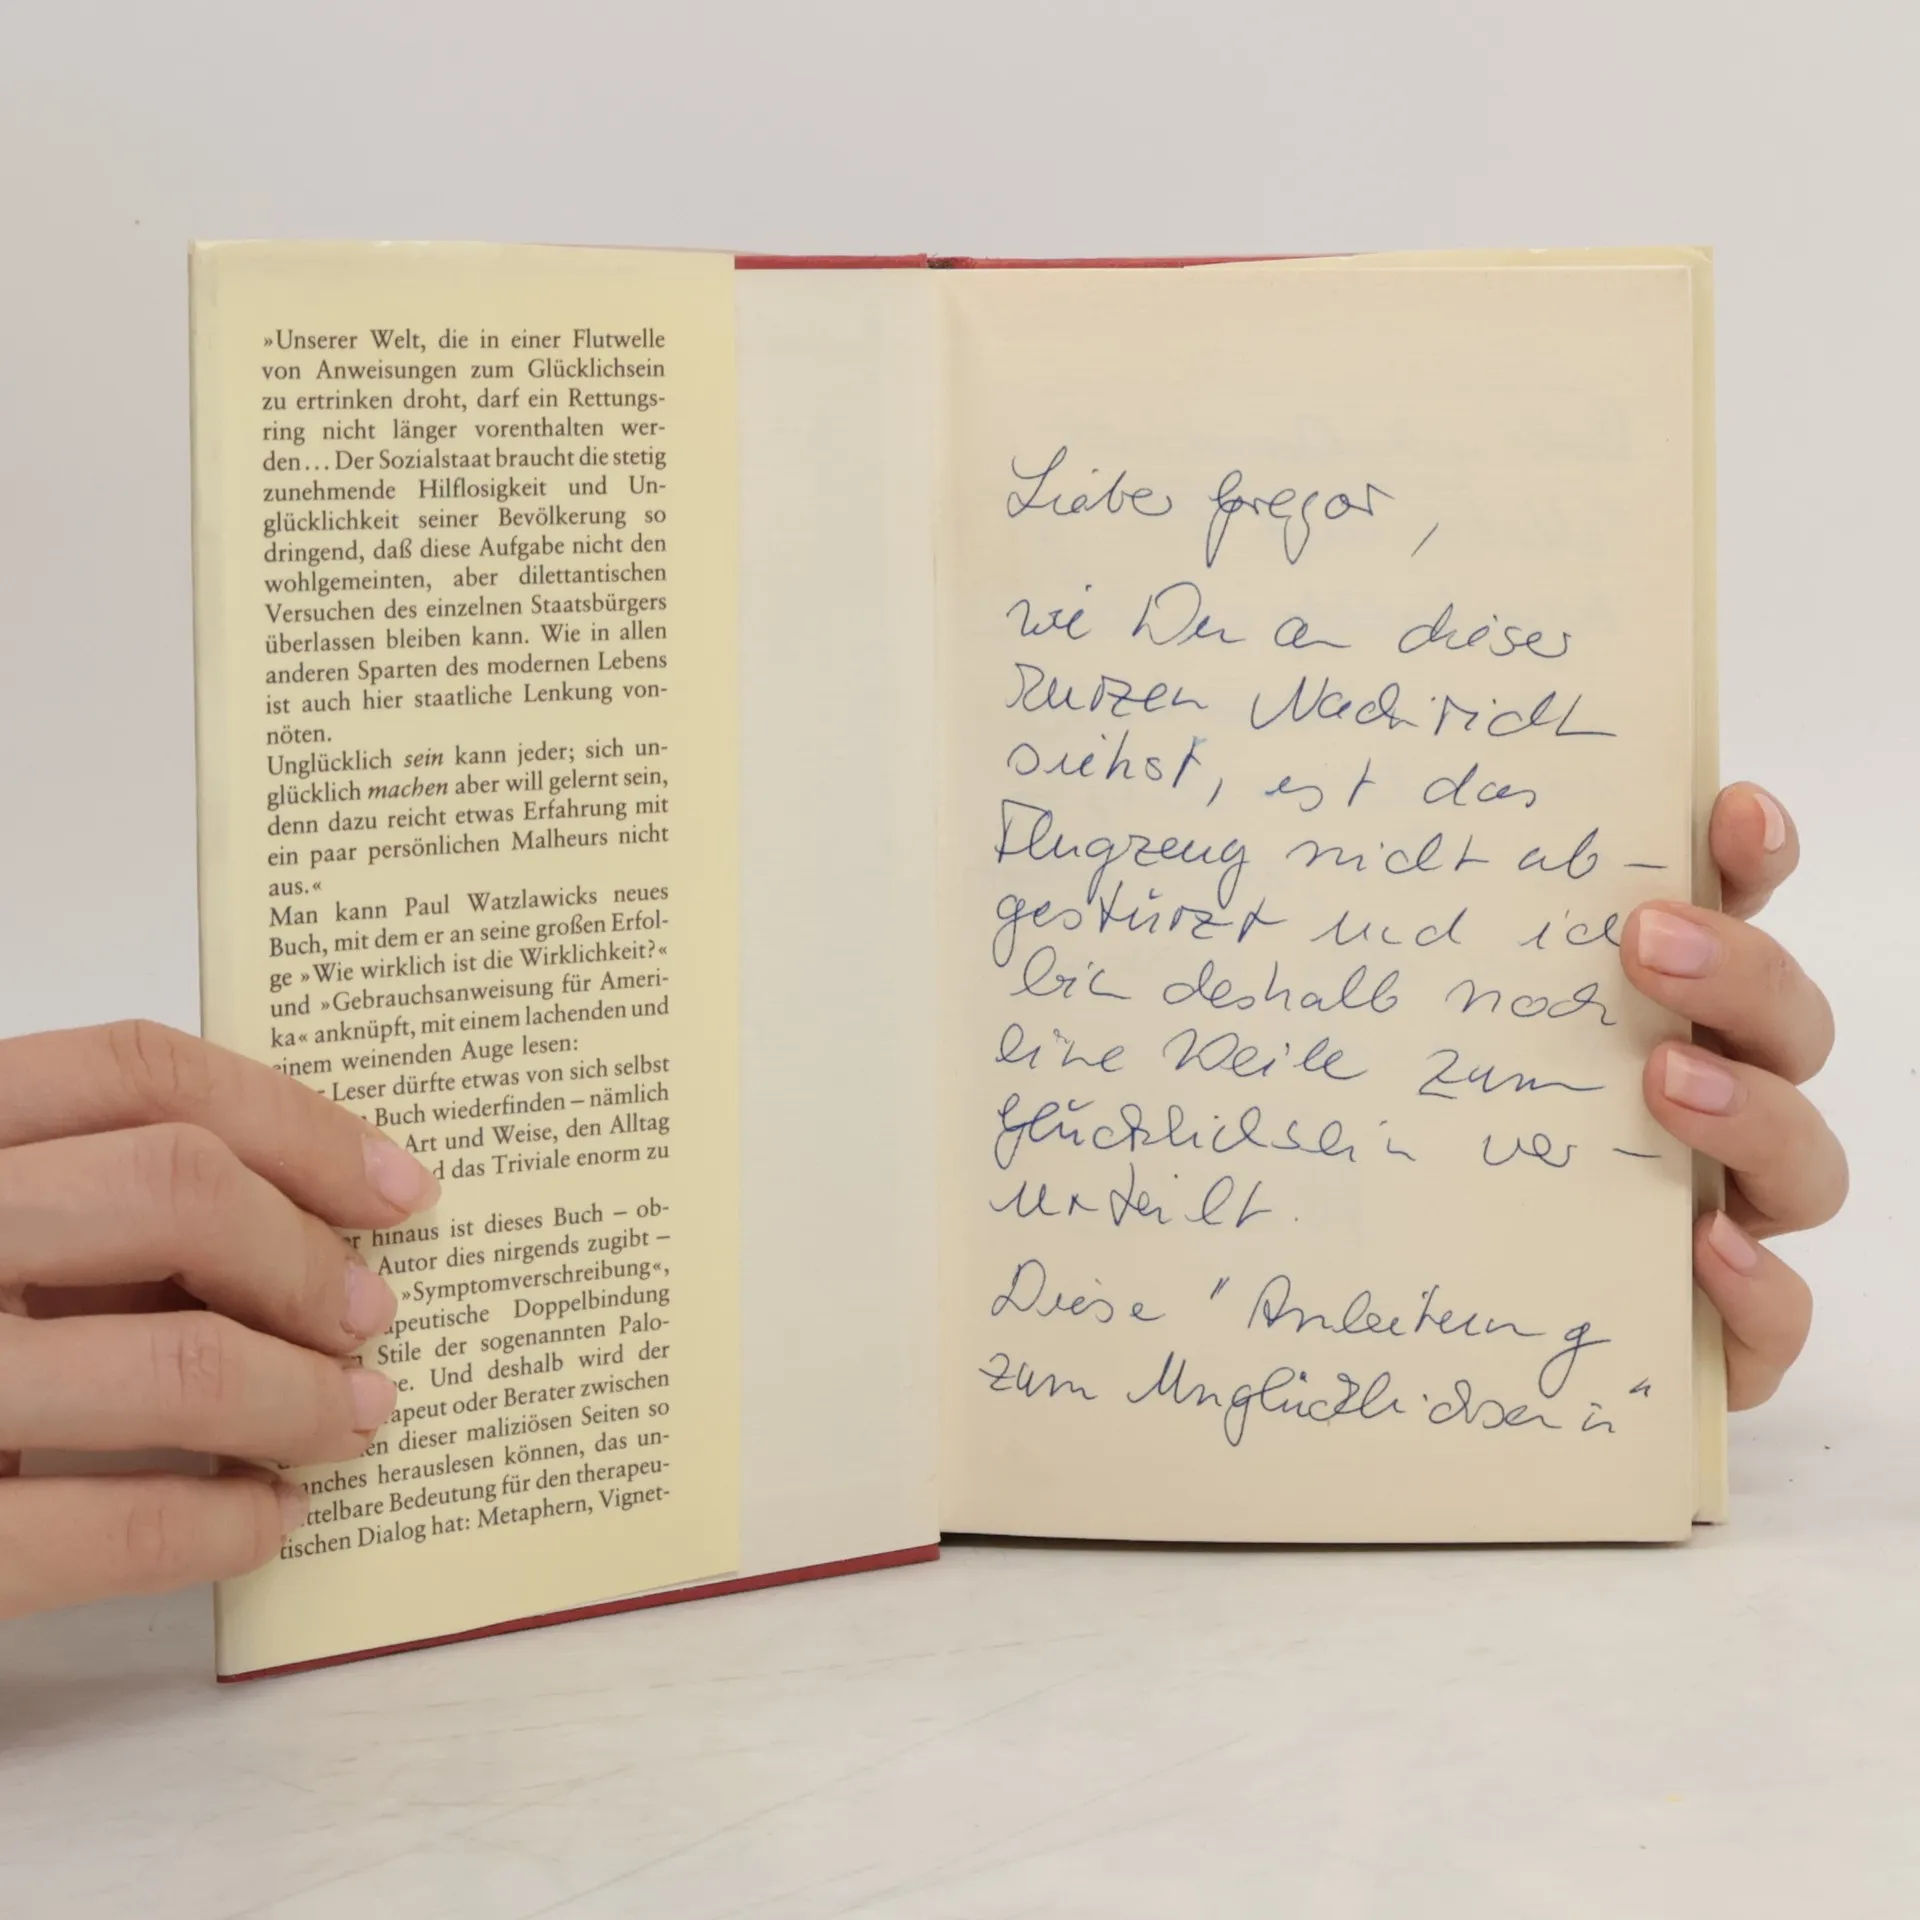 »Unserer Welt, die in einer Flutwelle
von Anweisungen zum Glücklichsein
zu ertrinken droht, darf ein Rettungs-
ring nicht länger vorenthalten wer-
den... Der Sozialstaat braucht die stetig
zunehmende Hilflosigkeit und Un-
glücklichkeit seiner Bevölkerung so
dringend, daß diese Aufgabe nicht den
wohlgemeinten, aber dilettantischen
Versuchen des einzelnen Staatsbürgers
überlassen bleiben kann. Wie in allen
anderen Sparten des modernen Lebens
ist auch hier staatliche Lenkung von-
nöten.
Unglücklich sein kann jeder; sich un-
glücklich machen aber will gelernt sein,
denn dazu reicht etwas Erfahrung mit
ein paar persönlichen Malheurs nicht
aus.«
Man kann Paul Watzlawicks neues
Buch, mit dem er an seine großen Erfol-
ge »Wie wirklich ist die Wirklichkeit?«
und »Gebrauchsanweisung für Ameri-
ka« anknüpft, mit einem lachenden und
einem weinenden Auge lesen:
Leser dürfte etwas von sich selbst
Buch wiederfinden – nämlich
Art und Weise, den Alltag
das Triviale enorm zu
hinaus ist dieses Buch – ob-
Autor dies nirgends zugibt –
»Symptomverschreibung«,
Doppelbindung
Stile der sogenannten Palo-
Und deshalb wird der
oder Berater zwischen
dieser maliziösen Seiten so
herauslesen können, das un-
Bedeutung für den therapeu-
tischen Dialog hat: Metaphern, Vignet-
Lieber Gregor,
wie Du an dieser
kurzen Nachricht
siehst, ist das
Flugzeug nicht ab-
gestürzt und ich
bin deshalb noch
eine Weile zum
Glücklichsein ver-
urteilt.
Diese "Anleitung
zum Unglücklichsein"